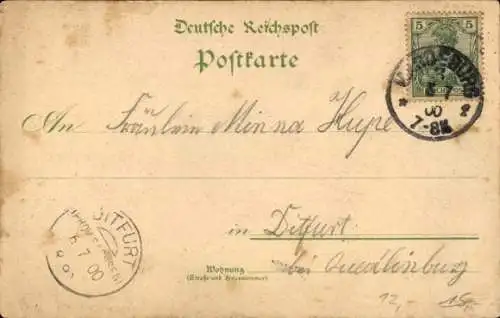 Deutsche Reichspost
Postkarte
5 5
MAGDEBURG
00
7-8N
An Fräulein Minna Hupe
in
Ditfurt
bei Quedlinburg
Wohnung
(Straße und Hausnummer)
DITFURT
7 00
12,- 15,-